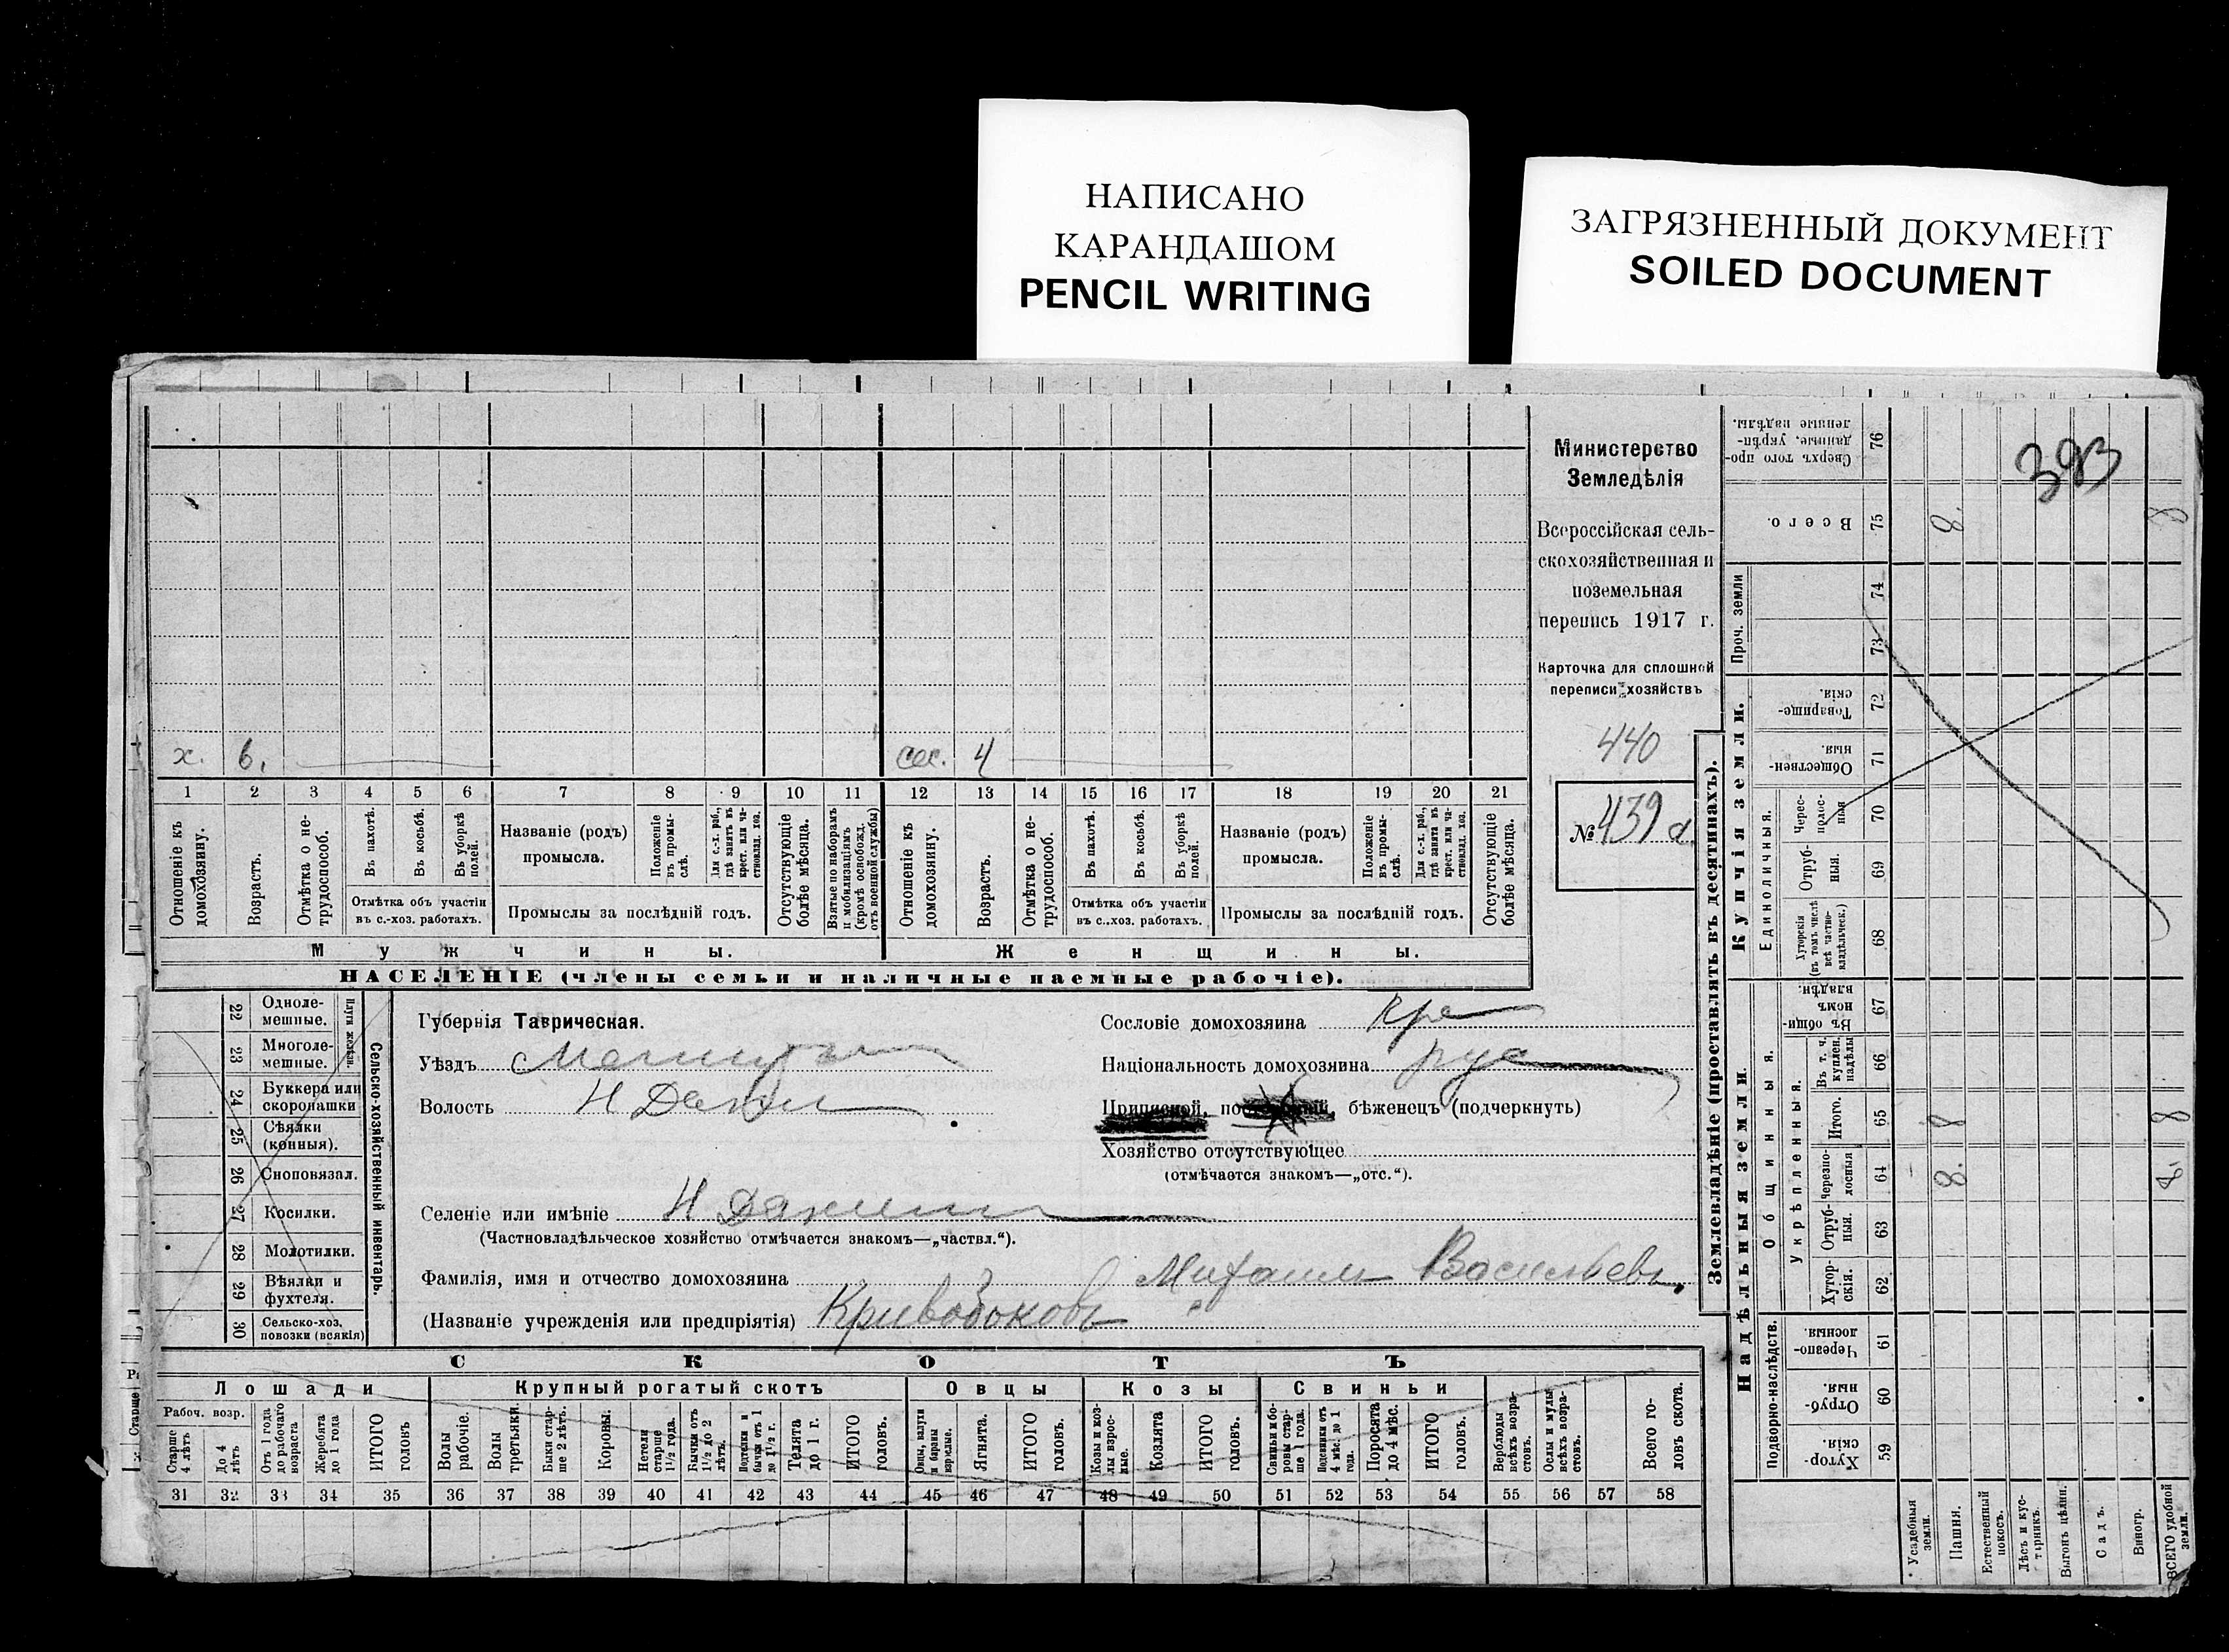 НАПИСАНО
КАРАНДАШОМ
PENCIL WRITING
ЗАГРЯЗНЕННЫЙ ДОКУМЕНТ
SOILED DOCUMENT
х. 6. сес. 4
1 2 3 4 5 6 7 8 9 10 11 12 13 14 15 16 17 18 19 20 21
Отношеніе къ домохозяину.
Возрастъ.
Отмѣтка о не-трудоспособ.
Въ пахотѣ.
Въ косьбѣ.
Въ уборкѣ полей.
Отмѣтка объ участіи
въ с.-хоз. работахъ.
Названіе (родъ)
промысла.
Положеніе въ промы-слѣ.
Для с.-х. раб., гдѣ занятъ въ крест. или ча-стновлад. хоз.
Промыслы за послѣдній годъ.
Отсутствующіе болѣе мѣсяца.
Взятые по наборамъ и мобилизаціямъ (кромѣ освобожд. отъ военной службы)
Отношеніе къ домохозяину.
Возрастъ.
Отмѣтка о не-трудоспособ.
Въ пахотѣ.
Въ косьбѣ.
Въ уборкѣ полей.
Отмѣтка объ участіи
въ с.-хоз. работахъ.
Названіе (родъ)
промысла.
Положеніе въ промы-слѣ.
Для с.-х. раб., гдѣ занята въ крест. или ча-стновлад. хоз.
Промыслы за послѣдній годъ.
Отсутствующіе болѣе мѣсяца.
Мужчины. Женщины.
НАСЕЛЕНІЕ (члены семьи и наличные наемные рабочіе).
Министерство
Земледѣлія
Всероссійская сель-
скохозяйственная и
поземельная
перепись 1917 г.
Карточка для сплошной
переписи хозяйствъ
440
№ 439
22 Одноле-мешные.
23 Многоле-мешные.
Плуги желѣзн.
24 Буккера или скоропашки
25 Сѣялки (конныя).
26 Сноповязал.
27 Косилки.
28 Молотилки.
29 Вѣялки и фухтеля.
30 Сельско-хоз. повозки (всякія)
Сельско-хозяйственный инвентарь.
Губернія Таврическая.
Уѣздъ
Волость
Селеніе или имѣніе
(Частновладѣльческое хозяйство отмѣчается знакомъ—„частвл.“).
Фамилія, имя и отчество домохозяина Михаилъ Васильевъ
(Названіе учрежденія или предпріятія) Кривобоковъ
Сословіе домохозяина кре
Національность домохозяина рус
Приписной, бѣженецъ (подчеркнуть)
Хозяйство отсутствующее
(отмѣчается знакомъ—„отс.“).
СКОТЪ
Лошади Крупный рогатый скотъ Овцы Козы Свиньи
Рабоч. возр.
Старше 4 лѣтъ
До 4 лѣтъ
Отъ 1 года до рабочаго возраста
Жеребята до 1 года
ИТОГО головъ
Волы рабочіе.
Волы третьяки.
Быки стар-ше 2 лѣтъ.
Коровы.
Нетели старше 1½ года.
Бычки отъ 1½ до 2 лѣтъ.
Подтелки и бычки отъ 1 до 1½ г.
Телята до 1 г.
ИТОГО головъ.
Овцы, валухи и бараны взрослые.
Ягнята.
ИТОГО головъ.
Козы и коз-лы взрос-лые.
Козлята
ИТОГО головъ.
Свиньи и бо-ровы стар-ше 1 года.
Подсвинки отъ 4 мѣс. до 1 года.
Поросята до 4 мѣс.
ИТОГО головъ.
Верблюды всѣхъ возра-стовъ.
Ослы и мулы всѣхъ возра-стовъ.
Всего го-ловъ скота.
31 32 33 34 35 36 37 38 39 40 41 42 43 44 45 46 47 48 49 50 51 52 53 54 55 56 57 58
Землевладѣніе (проставлять въ десятинахъ).
393
Сверхъ того про-данные, укрѣп-ленные надѣлы. 76
Всего. 75 8. 8
Проч. земли 74
73
Купчія земли.
Товарище-скія. 72
Обществен-ныя. 71
Единоличныя.
Черес-полос-ныя 70
Отруб-ныя. 69
Хуторскія (въ томъ числѣ всѣ частно-владѣльческ.) 68
Надѣльныя земли.
Общинныя.
Въ общи-номъ владѣн. 67
Укрѣпленныя.
Въ т. ч. куплен. надѣлы 66
Итого. 65 8 8
Черезпо-лосныя 64 8. 8.
Отруб-ныя. 63
Хутор-скія. 62
Подворно-наслѣдств.
Черезпо-лосныя. 61
Отруб-ныя. 60
Хутор-скія. 59
Усадебныя земли.
Пашня.
Естественный покосъ.
Лѣсъ и кус-тарникъ.
Выгонъ цѣлин.
Садъ.
Виногр.
ВСЕГО удобной земли.